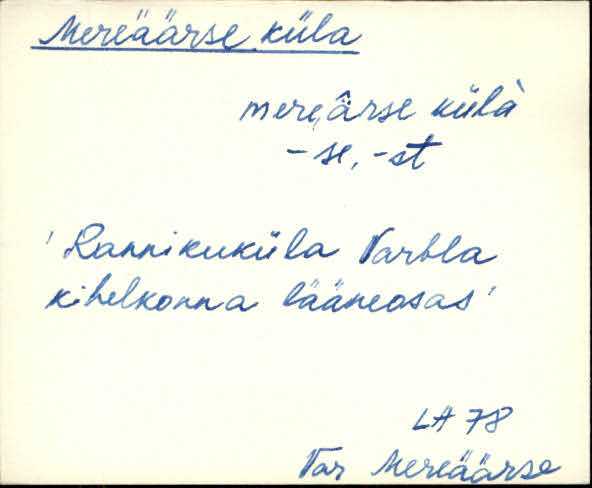 Mereäärse küla
mere͔ä̂rse külà
-se, -st
'Rannikuküla Varbla
kihelkonna lääneosas'
LH 78
Var Mereäärse